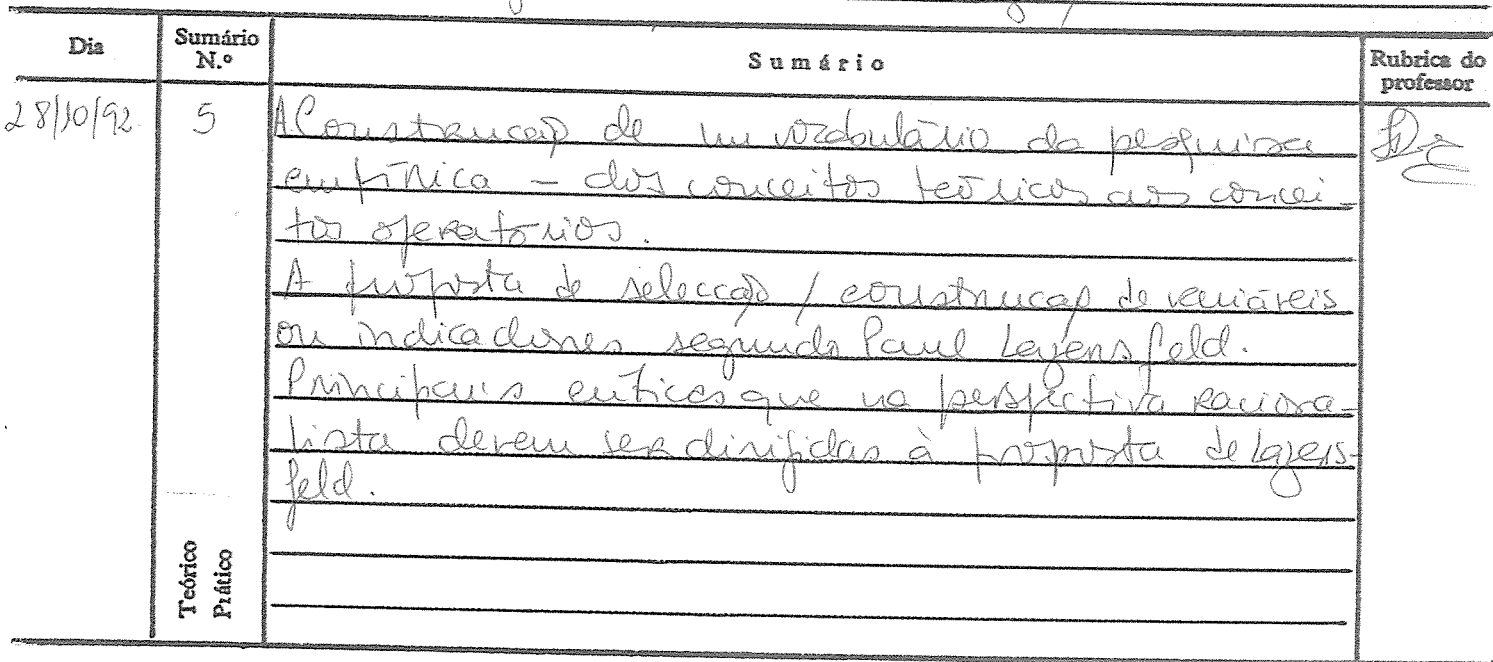 Dia Sumário N.º Sumário Rubrica do professor
28/10/92 5 A Construção de um vocabulário da pesquisa
empírica – dos conceitos teóricos aos concei-
tos operatórios.
A proposta de selecção / construção de variáveis
ou indicadores segundo Paul Lazensfeld.
Principais críticas que na perspectiva raciona-
lista devem ser dirigidas à proposta de Lazens-
feld.
Teórico
Prático